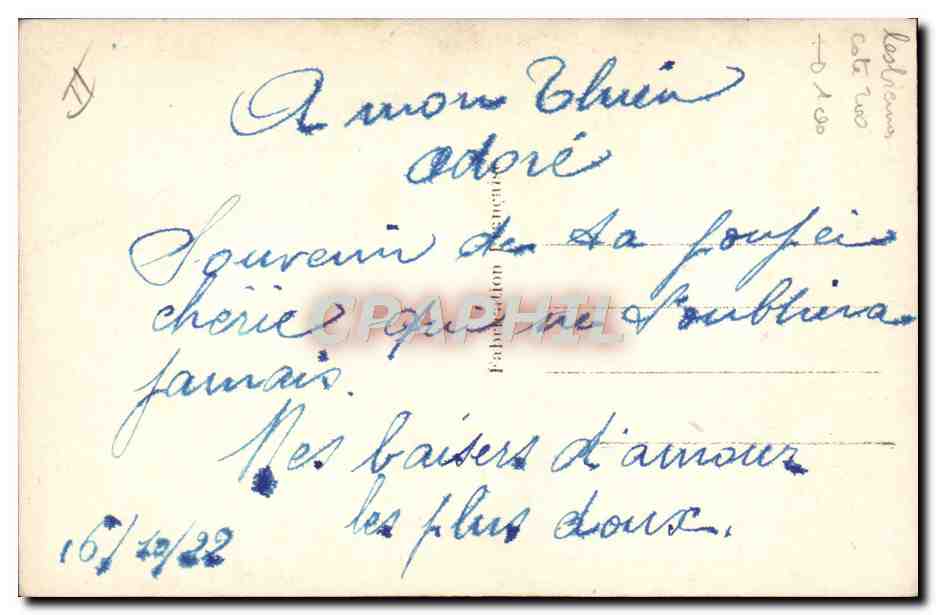 A mon Thien
adoré
Souvenir de ta poupée
chérie qui ne t'oubliera
jamais.
Mes baisers d'amour
les plus doux.
16/12/22
Fabrication Française
CPAPHIL
lesbiennes
cote 200
100